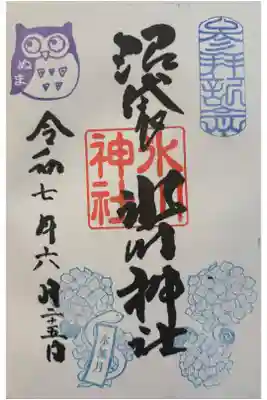 沼袋氷川神社
氷川
神社
令和七年六月二十五日
ぬま
水無月